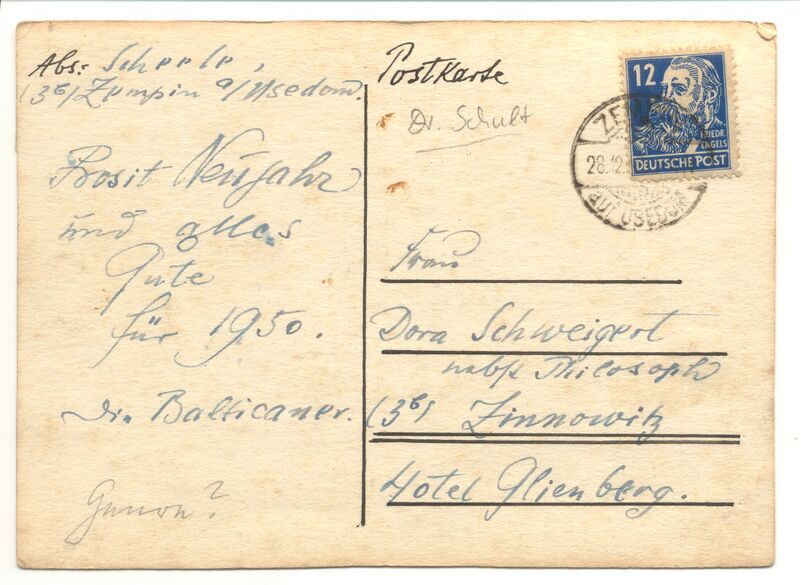 Abs: Scheele,
(3b) Zempin a/Usedom.
Prosit Neujahr
und alles
Gute
für 1950.
Die Balticaner.
Postkarte
Dr. Schult
12
FRIEDR.
ENGELS
DEUTSCHE POST
28.12.
auf USEDOM
Frau
Dora Schweigert
nebst Philosoph
(3b) Zinnowitz
Hotel Glienberg.